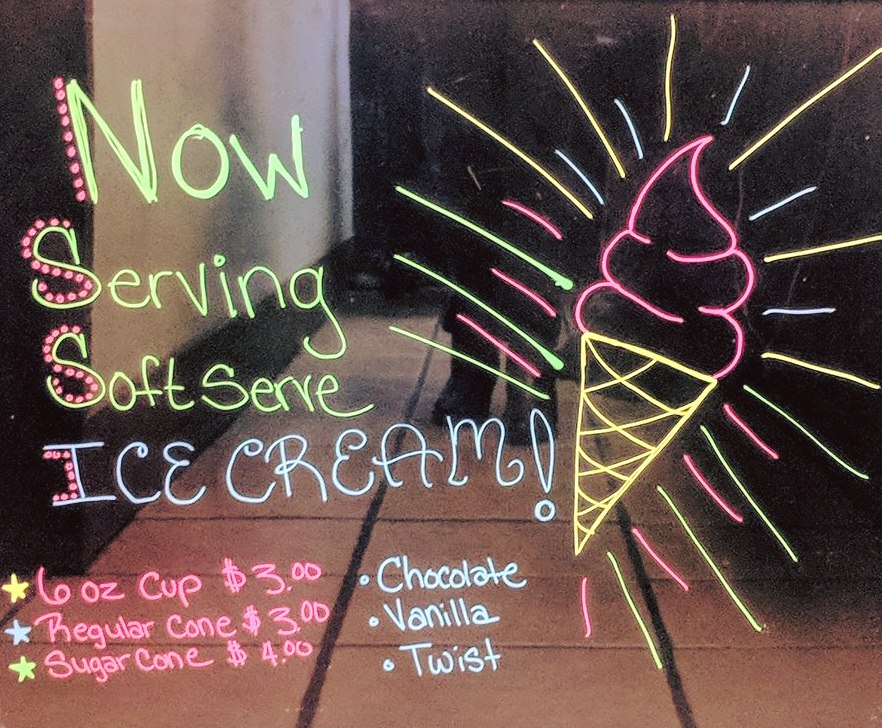 Now
Serving
Soft Serve
ICE CREAM!
6 oz Cup $3.00
Regular Cone $3.00
Sugar Cone $4.00
• Chocolate
• Vanilla
• Twist